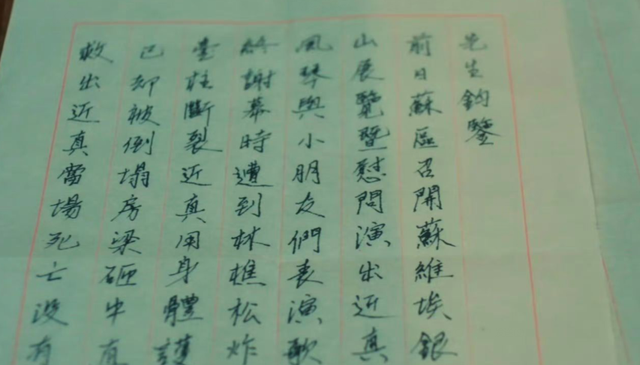 先生鈞鑒
前日蘇區召開蘇維埃銀
山展覽暨慰問演出近真
風琴與小朋友們表演歌
謝幕時遭到林樵松炸
臺柱斷裂近真用身體護
已却被倒塌房梁砸中
救出近真當場死亡沒有